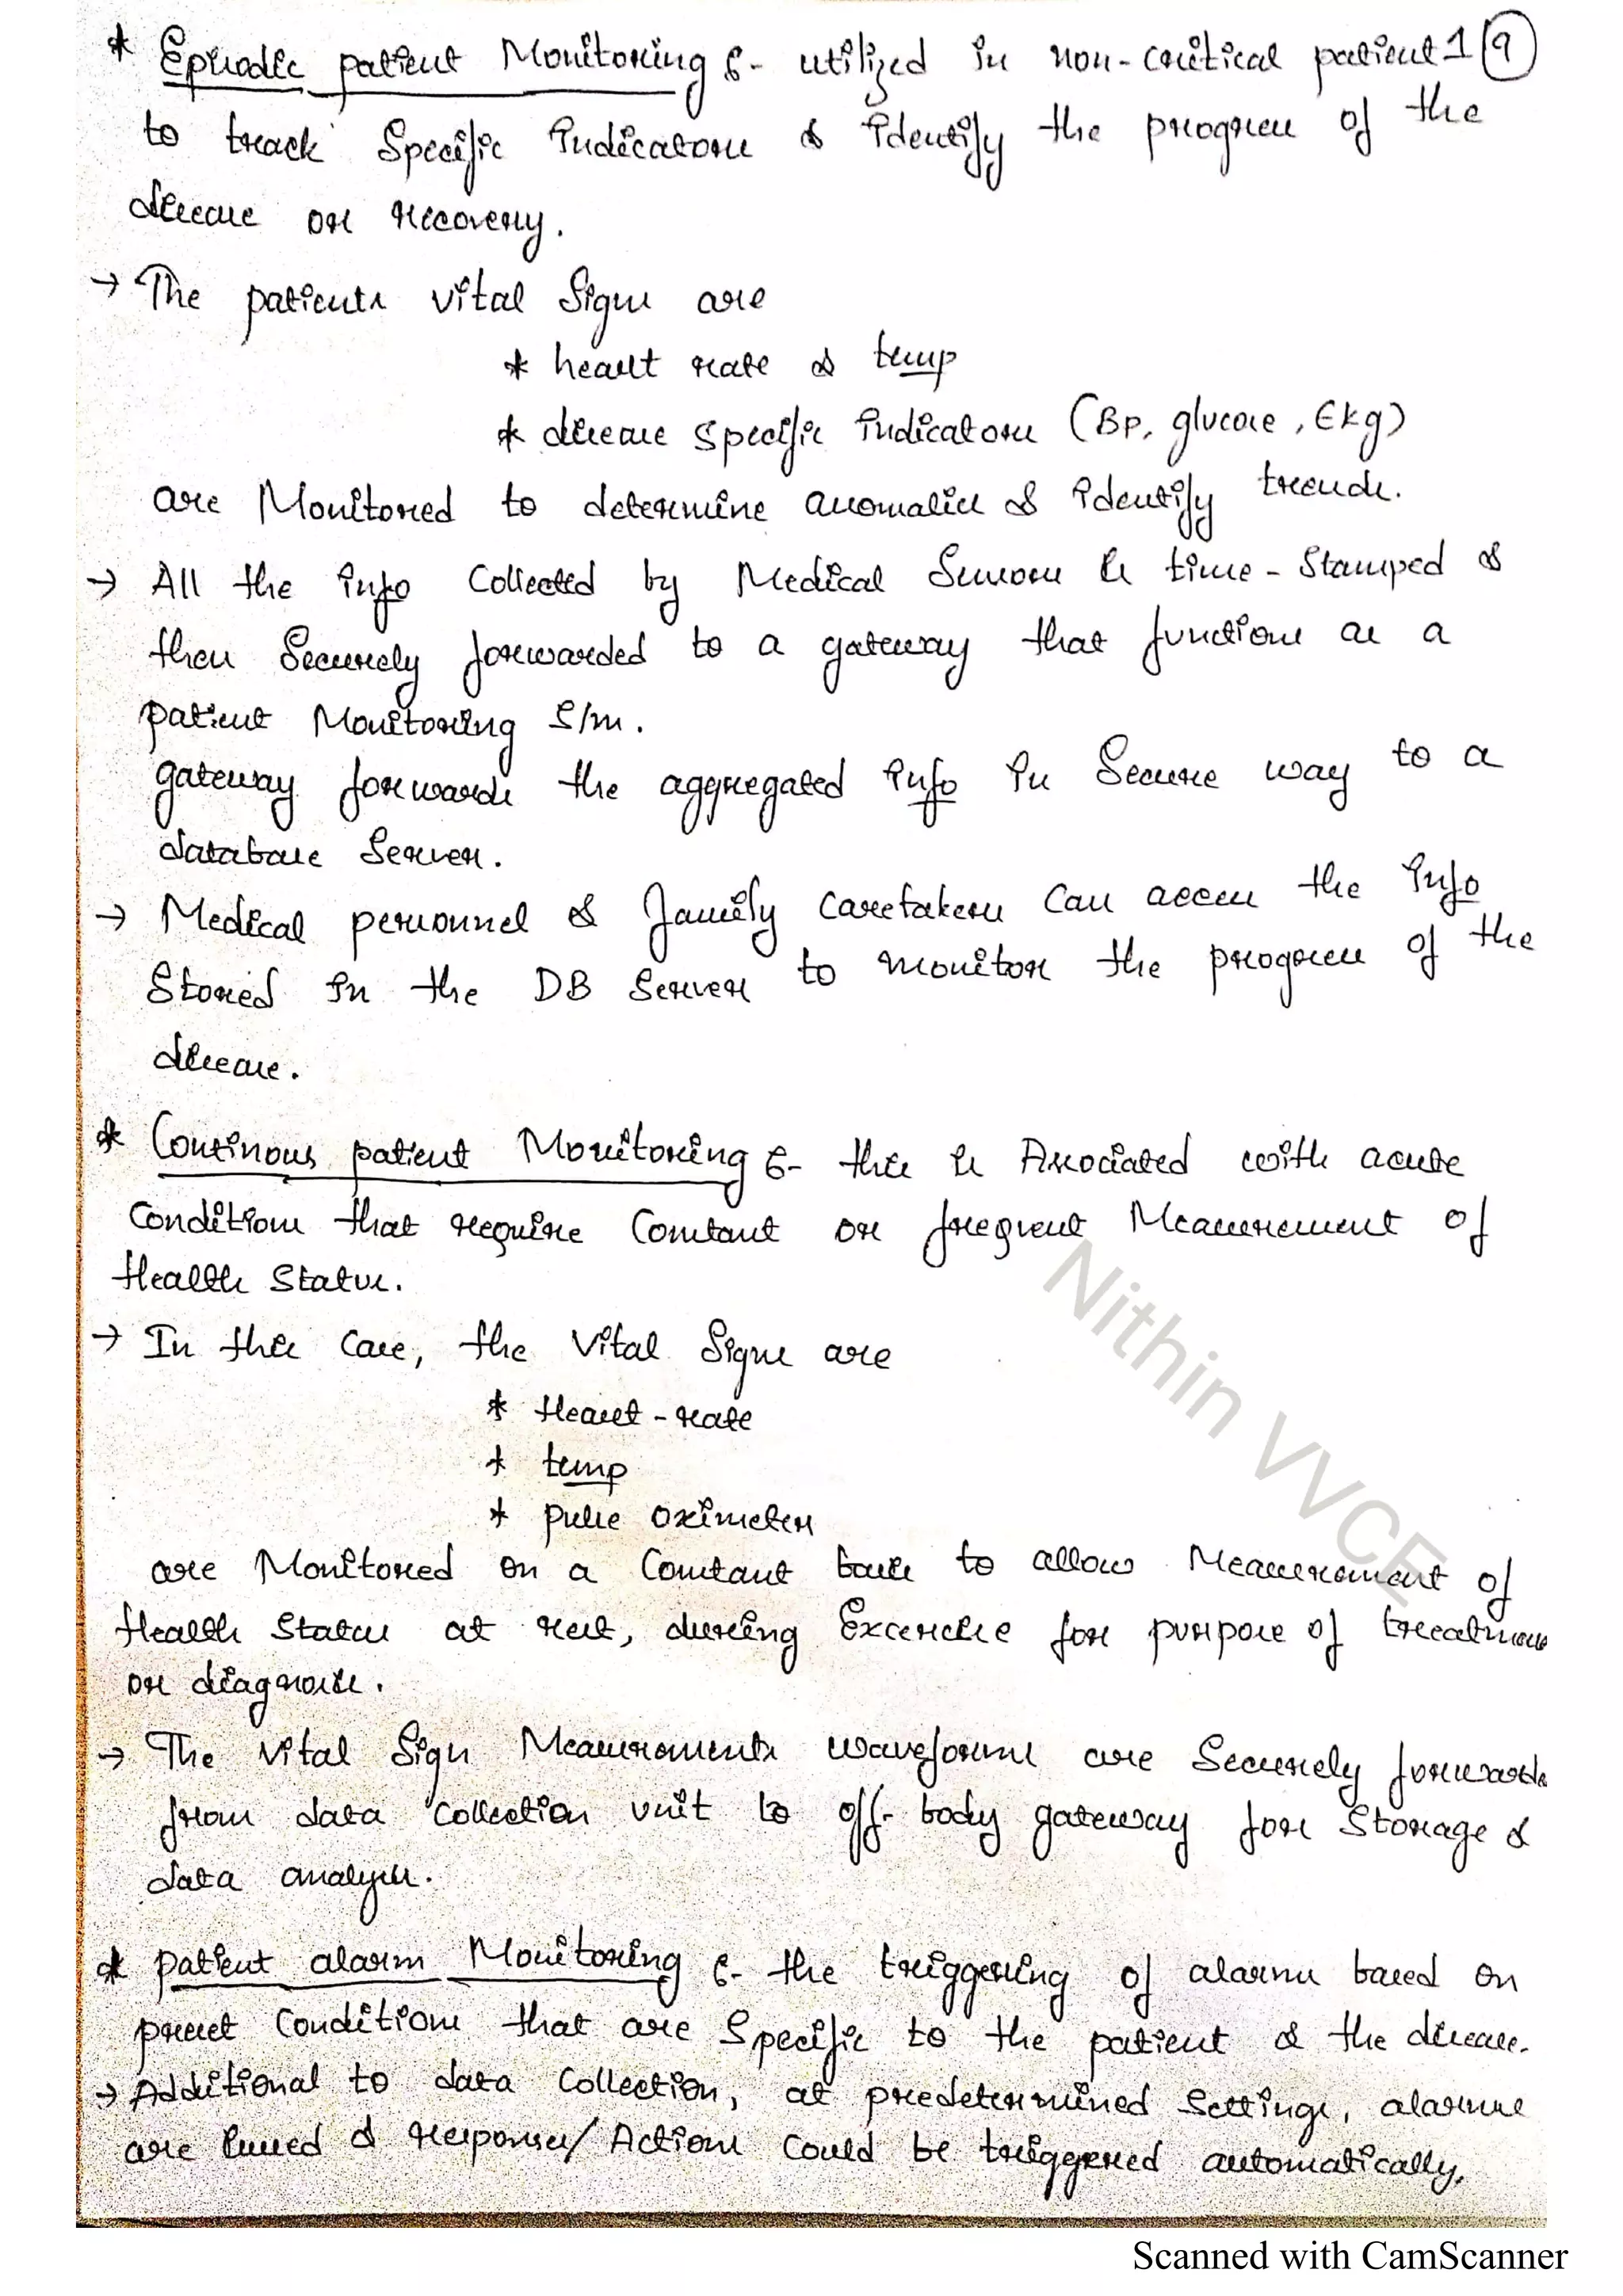 * Episodic patient Monitoring :- utilized in non-critical patients 9
to track Specific indicators & identify the progress of the
disease or recovery.
→ The patients vital signs are
* heart rate & temp
* disease specific indicators (BP, glucose, EKg)
are Monitored to determine anomalies & identify trends.
→ All the info Collected by Medical Sensors is time-Stamped &
then Securely forwarded to a gateway that functions as a
patient Monitoring S/m.
gateway forwards the aggregated info in Secure way to a
database Server.
→ Medical personnel & family caretakers Can access the info
Stored in the DB Server to monitor the progress of the
disease.
* Continous patient Monitoring :- this is Associated with acute
Conditions that require Constant or frequent Measurement of
Health Status.
→ In this Case, the Vital Signs are
* Heart-rate
* temp
* pulse oximeter
are Monitored on a Constant basis to allow Measurement of
Health Status at rest, during Excercise for purpose of treatment
or diagnosis.
→ The Vital Sign Measurements waveforms are Securely forwards
from data collection unit to off-body gateway for Storage &
data analysis.
* patient alarm Monitoring :- the triggering of alarms based on
preset Conditions that are Specific to the patient & the disease.
→ Additional to data Collection, at predetermined Settings, alarms
are issued & responses/Actions Could be triggered automatically.
Nithin VVCE
Scanned with CamScanner